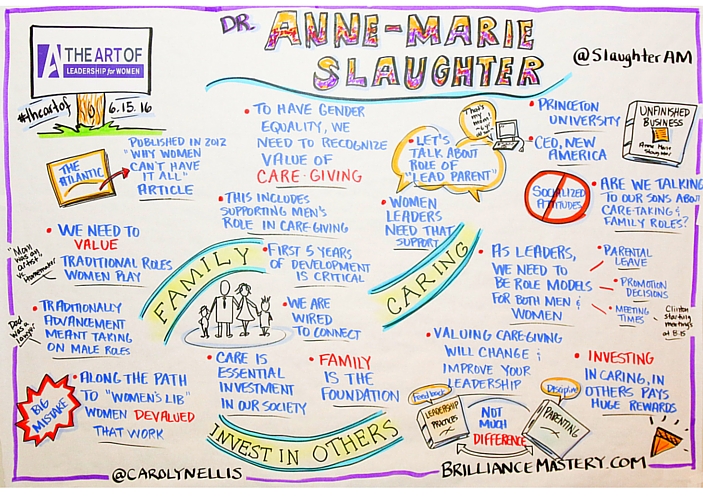 THE ART OF
LEADERSHIP for WOMEN
#theartof
6.15.16
DR. ANNE-MARIE
SLAUGHTER
@SlaughterAM
THE
ATLANTIC
PUBLISHED IN 2012
"WHY WOMEN
CAN'T HAVE
IT ALL"
ARTICLE
• TO HAVE GENDER
EQUALITY, WE
NEED TO RECOGNIZE
VALUE OF
CARE-GIVING
• THIS INCLUDES
SUPPORTING MEN'S
ROLE IN CARE-GIVING
That's
my
• LET'S
TALK ABOUT
ROLE OF
"LEAD PARENT"
• WOMEN
LEADERS
NEED THAT
SUPPORT
• PRINCETON
UNIVERSITY
• CEO, NEW
AMERICA
UNFINISHED
BUSINESS
Anne Marie
Slaughter
SOCIALIZED
ATTITUDES
• ARE WE TALKING
TO OUR SONS ABOUT
CARE-TAKING &
FAMILY ROLES?
• WE NEED TO
VALUE
TRADITIONAL ROLES
WOMEN PLAY
"Mom
was an
artist
vs.
homemaker"
• TRADITIONALLY
ADVANCEMENT
MEANT TAKING
ON MALE ROLES
Dad
was a
lawyer
BIG
MISTAKE
• ALONG THE PATH
TO "WOMEN'S LIB"
WOMEN DEVALUED
THAT WORK
FAMILY
• FIRST 5 YEARS
OF DEVELOPMENT
IS CRITICAL
• WE ARE
WIRED
TO CONNECT
• CARE IS
ESSENTIAL
INVESTMENT
IN OUR SOCIETY
• FAMILY
IS THE
FOUNDATION
INVEST IN OTHERS
CARING
• AS LEADERS,
WE NEED TO
BE ROLE MODELS
FOR BOTH MEN &
WOMEN
• PARENTAL
LEAVE
• PROMOTION
DECISIONS
• MEETING
TIMES
Clinton
starting
meetings
at 8:15
• VALUING CAREGIVING
WILL CHANGE &
IMPROVE YOUR
LEADERSHIP
• INVESTING
IN CARING, IN
OTHERS PAYS
HUGE REWARDS
Feedback
LEADERSHIP
PRACTICES
NOT
MUCH
DIFFERENCE
Discipline
PARENTING
@CAROLYNELLIS
BRILLIANCEMASTERY.COM